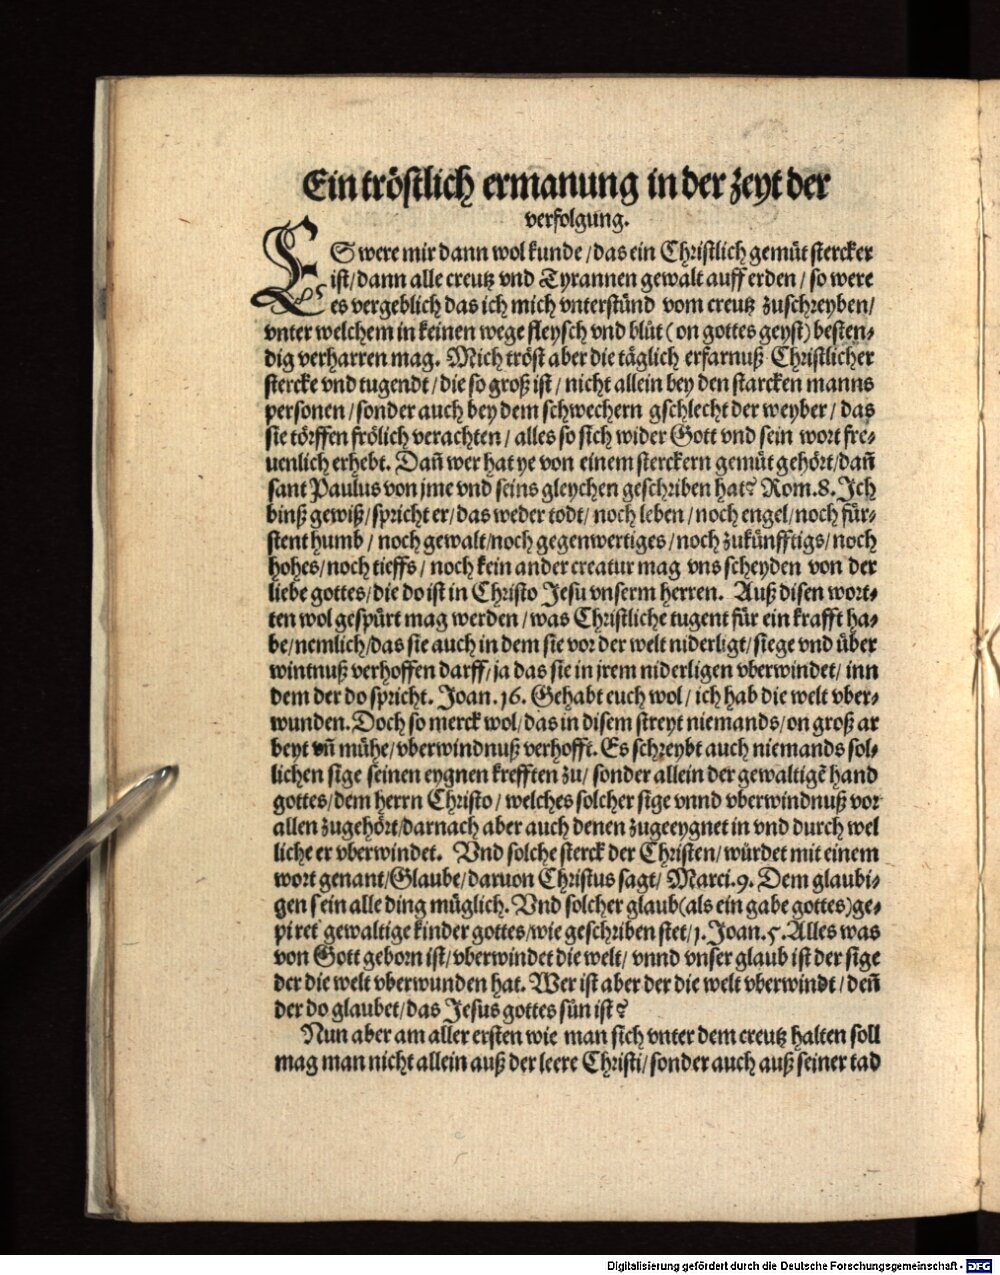 Ein tröstlich ermanung in der zeyt der
verfolgung.
ES were mir dann wol kunde / das ein Christlich gemüt stercker
ist / dann alle creutz vnd Tyrannen gewalt auff erden / so were
es vergeblich das ich mich vnterstünd vom creutz zuschreyben /
vnter welchem in keinen wege fleysch vnd blüt ( on gottes geyst ) besten⸗
dig verharren mag. Mich tröst aber die täglich erfarnuß Christlicher
stercke vnd tugendt / die so groß ist / nicht allein bey den starcken manns
personen / sonder auch bey dem schwechern gschlecht der weyber / das
sie törffen frölich verachten / alles so sich wider Gott vnd sein wort fre⸗
uenlich erhebt. Dañ wer hat ye von einem sterckern gemüt gehört / dañ
sant Paulus von jme vnd seins gleychen geschriben hat? Rom. 8. Ich
binß gewiß / spricht er / das weder todt / noch leben / noch engel / noch für⸗
stenthumb / noch gewalt / noch gegenwertiges / noch zukünfftigs / noch
hohes / noch tieffs / noch kein ander creatur mag vns scheyden von der
liebe gottes / die do ist in Christo Jesu vnserm herren. Auß disen wort⸗
ten wol gespürt mag werden / was Christliche tugent für ein krafft ha⸗
be / nemlich / das sie auch in dem sie vor der welt niderligt / siege vnd über
wintnuß verhoffen darff / ja das sie in jrem niderligen vberwindet / inn
dem der do spricht. Joan. 16. Gehabt euch wol / ich hab die welt vber⸗
wunden. Doch so merck wol / das in disem streyt niemands / on groß ar
beyt vñ mühe / vberwindnuß verhofft. Es schreybt auch niemands sol⸗
lichen sige seinen eygnen krefften zu / sonder allein der gewaltigē hand
gottes / dem herrn Christo / welches solcher sige vnnd vberwindnuß vor
allen zugehört / darnach aber auch denen zugeeygnet in vnd durch wel
liche er vberwindet. Vnd solche sterck der Christen / würdet mit einem
wort genant / Glaube / daruon Christus sagt / Marci. 9. Dem glaubi⸗
gen sein alle ding müglich. Vnd solcher glaub ( als ein gabe gottes ) ge⸗
piret gewaltige kinder gottes / wie geschriben stet / 1. Joan. 5. Alles was
von Gott geborn ist / vberwindet die welt / vnnd vnser glaub ist der sige
der die welt vberwunden hat. Wer ist aber der die welt vberwindt / deñ
der do glaubet / das Jesus gottes sün ist?
Nun aber am aller ersten wie man sich vnter dem creutz halten soll
mag man nicht allein auß der leere Christi / sonder auch auß seiner tad
Digitalisierung gefördert durch die Deutsche Forschungsgemeinschaft - DFG